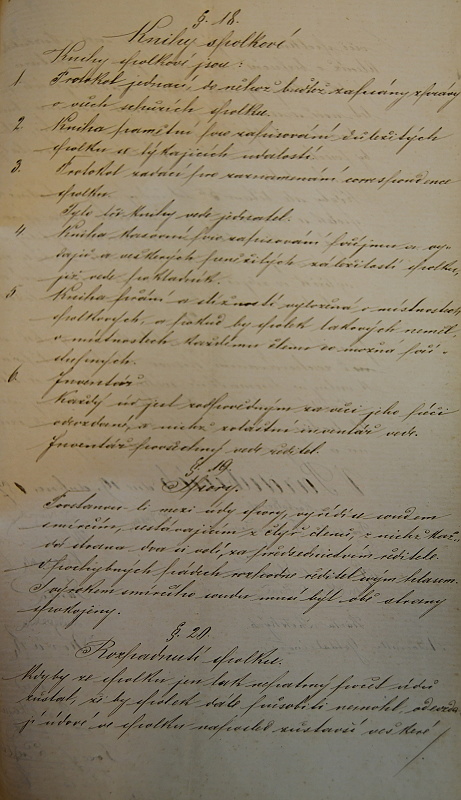 §. 18.
Knihy spolkové.
Knihy spolkové jsou:
1. Protokol jednací, do něhož buďtež zapsány zprávy
o všech schůzích spolku.
2 Kniha pamětní pro zapisování důležitých
spolku se týkajících událostí.
3. Protokol podací pro zaznamenání correspondence
spolku.
Tyto tři knihy vede jednatel.
4 Kniha kassovní pro zapisování příjmu a vy-
dajů a veškerých peněžitých záležitostí spolku,
již vede pokladník.
5 Kniha přání a stížností vyložená v místnostech
spolkových, a pokud by spolek takových neměl,
v místnostech každému členu co možná pří-
stupných.
6. Inventář.
Každý úd jest zodpovědným za věci jeho péči
odevzdané, a nichž zvláštní inventář vede.
Inventář všeobecný vede ředitel.
§. 19.
Spory.
Povstanou li mezi údy spory, vyřídí se soudem
smírčím, sestávajícím z čtyř členů, z nichž kaž-
dá strana dva si volí, za předsednictvím ředitele.
V pochybných pádech rozhodne ředitel svým hlasem.
S výrokem smírčího soudu musí být obě strany
spokojeny.
§. 20.
Rozpadnutí spolku.
Kdyby ve spolku jen tak nepatrný počet údů
zůstal, že by spolek dále působiti nemohl, odevzda-
jí údové ve spolku naposled zůstavší veškeré